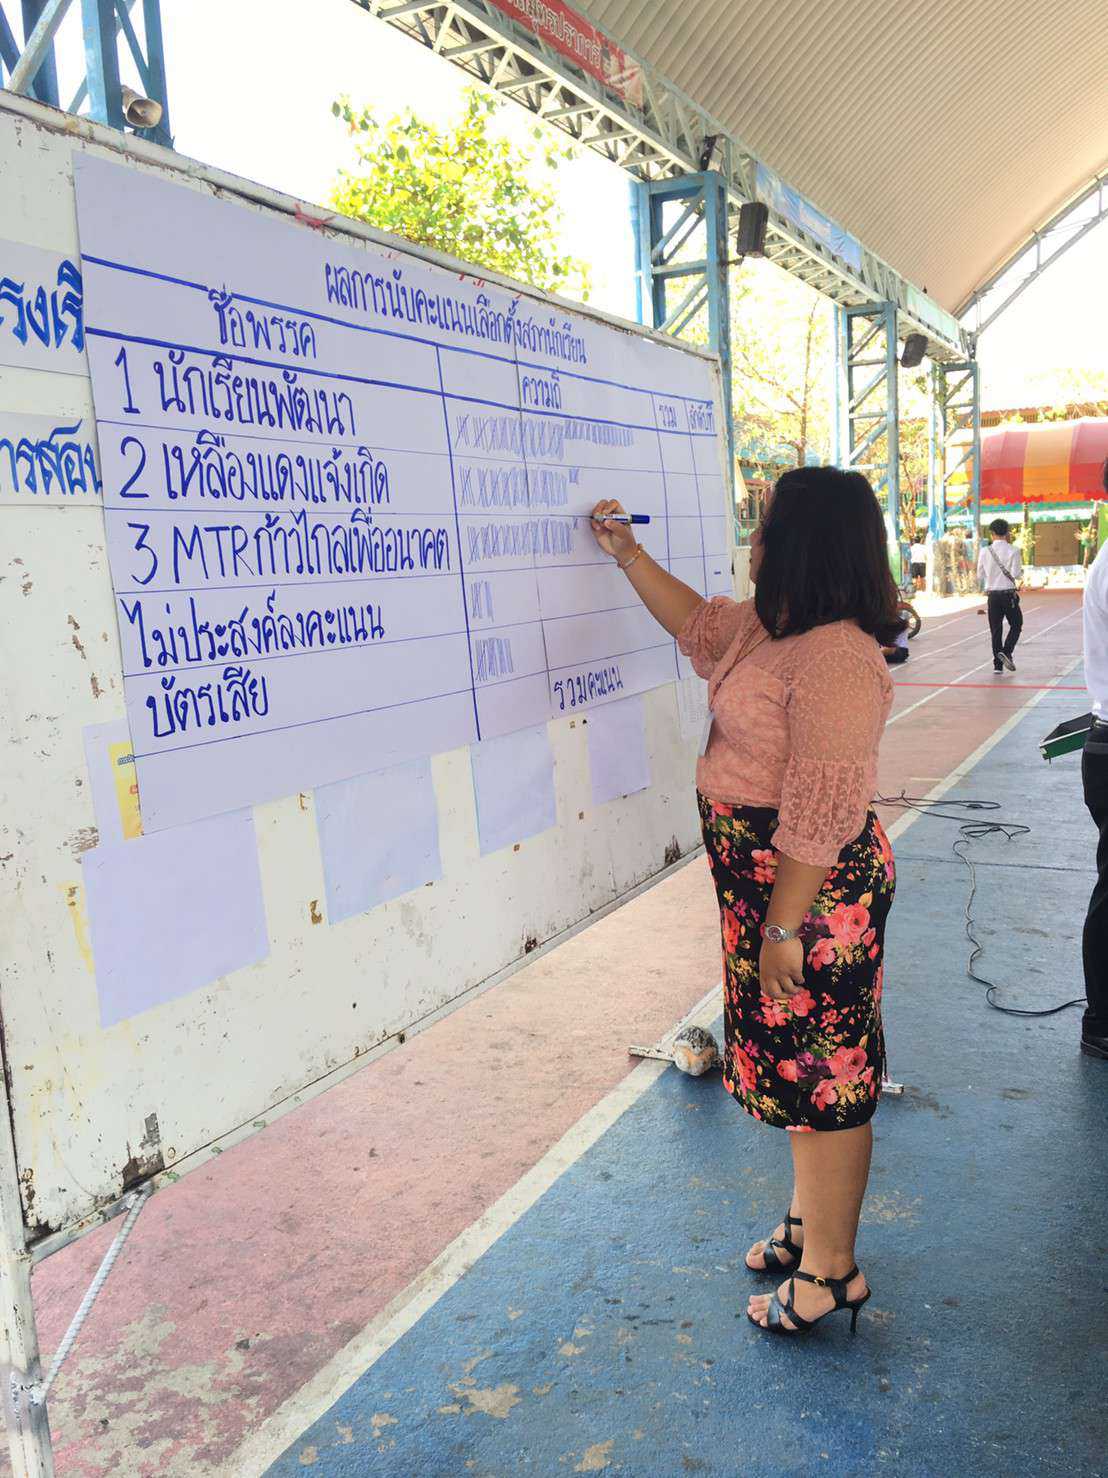 ผลการนับคะแนนเลือกตั้งสภานักเรียน
ชื่อพรรค ความถี่ รวม ลำดับที่
1 นักเรียนพัฒนา
2 เหลืองแดงแจ้งเกิด
3 MTRก้าวไกลเพื่ออนาคต
ไม่ประสงค์ลงคะแนน
บัตรเสีย
รวมคะแนน